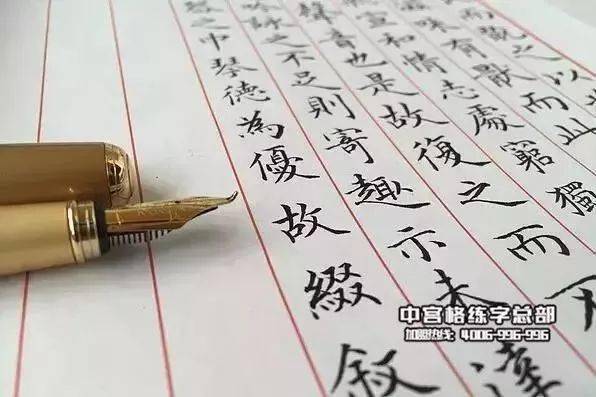 而翫之以
滋味有猒而此
宣和情志處窮獨
聲音也是故復之而不
吟詠之不足則寄趣示未達
之中琴德為優故綴敘
中宫格练字总部
加盟热线: 4006-996-996